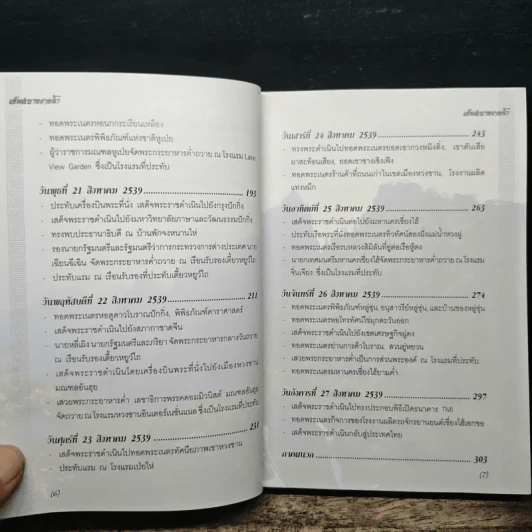 เสด็จฯ
- ทอดพระเนตรหอนกกระเรียนเหลือง
- ทอดพระเนตรพิพิธภัณฑ์แห่งชาติหูเป่ย
- ผู้ว่าราชการมณฑลหูเป่ยจัดพระกระยาหารค่ำถวาย ณ โรงแรม Lake
View Garden ซึ่งเป็นโรงแรมที่ประทับ
วันพุธที่ 21 สิงหาคม 2539 193
- ประทับเครื่องบินพระที่นั่ง เสด็จพระราชดำเนินไปยังกรุงปักกิ่ง
- เสด็จพระราชดำเนินไปยังมหาวิทยาลัยภาษาและวัฒนธรรมปักกิ่ง
- ทรงพบประธานาธิบดี ณ บ้านพักจงหนานไห่
- รองนายกรัฐมนตรีและรัฐมนตรีว่าการกระทรวงการต่างประเทศ นาย
เฉียนฉีเฉิน จัดพระกระยาหารค่ำถวาย ณ เรือนรับรองเตี้ยวหยูวไถ
- ประทับแรม ณ เรือนรับรองที่ประทับเตี้ยวหยูวไถ
วันพฤหัสบดีที่ 22 สิงหาคม 2539 211
- ทอดพระเนตรหอดูดาวโบราณปักกิ่ง, พิพิธภัณฑ์ดาราศาสตร์
- เสด็จพระราชดำเนินไปยังสภากาชาดจีน
- นายหลี่เผิง นายกรัฐมนตรีและภริยา จัดพระกระยาหารกลางวันถวาย
ณ เรือนรับรองเตี้ยวหยูวไถ
- เสด็จพระราชดำเนินโดยเครื่องบินพระที่นั่งไปยังเมืองหวงซาน
มณฑลอันฮุย
- เสวยพระกระยาหารค่ำ เลขาธิการพรรคคอมมิวนิสต์ มณฑลอันฮุย
จัดถวาย ณ โรงแรมหวงซานอินเตอร์เนชั่นแนล ซึ่งเป็นโรงแรมที่ประทับ
วันศุกร์ที่ 23 สิงหาคม 2539 231
- เสด็จพระราชดำเนินไปทอดพระเนตรทัศนียภาพเขาหวงซาน
ประทับแรม ณ โรงแรมเป่ยไห่
(6)
วันเสาร์ที่ 24 สิงหาคม 2539 243
- ทรงพระดำเนินไปทอดพระเนตรยอดเขากวงหมิงติ่ง, เขาตันเสีย
ผาสะท้อนเสียง, ยอดเขาซางเซิงเฟิง
- ทอดพระเนตรร้านค้าที่ถนนเก่าในเขตเมืองหวงซาน, โรงงานผลิต
แท่งหมึก
วันอาทิตย์ที่ 25 สิงหาคม 2539 263
- เสด็จพระราชดำเนินต่อไปยังมหานครเซี่ยงไฮ้
- ประทับเรือพระที่นั่งทอดพระเนตรทิวทัศน์สองฝั่งแม่น้ำหวงผู่
- ทอดพระเนตรเรือรบหลวงสิมิลันที่อู่ต่อเรือฮู่ตง
- นายกเทศมนตรีมหานครเซี่ยงไฮ้จัดพระกระยาหารค่ำถวาย ณ โรงแรม
จิ่นเจียง ซึ่งเป็นโรงแรมที่ประทับ
วันจันทร์ที่ 26 สิงหาคม 2539 274
- ทอดพระเนตรพิพิธภัณฑ์หลู่ซุ่น, อนุสาวรีย์หลู่ซุ่น, และบ้านของหลู่ซุ่น
- ทอดพระเนตรหอโทรทัศน์ไข่มุกตะวันออก
- เสด็จพระราชดำเนินไปยังเขตเศรษฐกิจผู่ตง
- ทอดพระเนตรย่านการค้าโบราณ, สวนยูหยวน
- เสวยพระกระยาหารค่ำเป็นการส่วนพระองค์ ณ โรงแรมที่ประทับ
- ทอดพระเนตรมหานครเซี่ยงไฮ้ยามค่ำ
วันอังคารที่ 27 สิงหาคม 2539 297
- เสด็จพระราชดำเนินไปทรงประกอบพิธีเปิดธนาคาร TMI
- ทอดพระเนตรกิจการของโรงงานผลิตรถจักรยานยนต์เซี่ยงไฮ้เอกชอ
- เสด็จพระราชดำเนินกลับสู่ประเทศไทย
ภาคผนวก 303
(7)